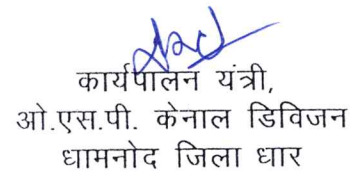 कार्यपालन यंत्री,
ओ.एस.पी. केनाल डिविजन
धामनोद जिला धार